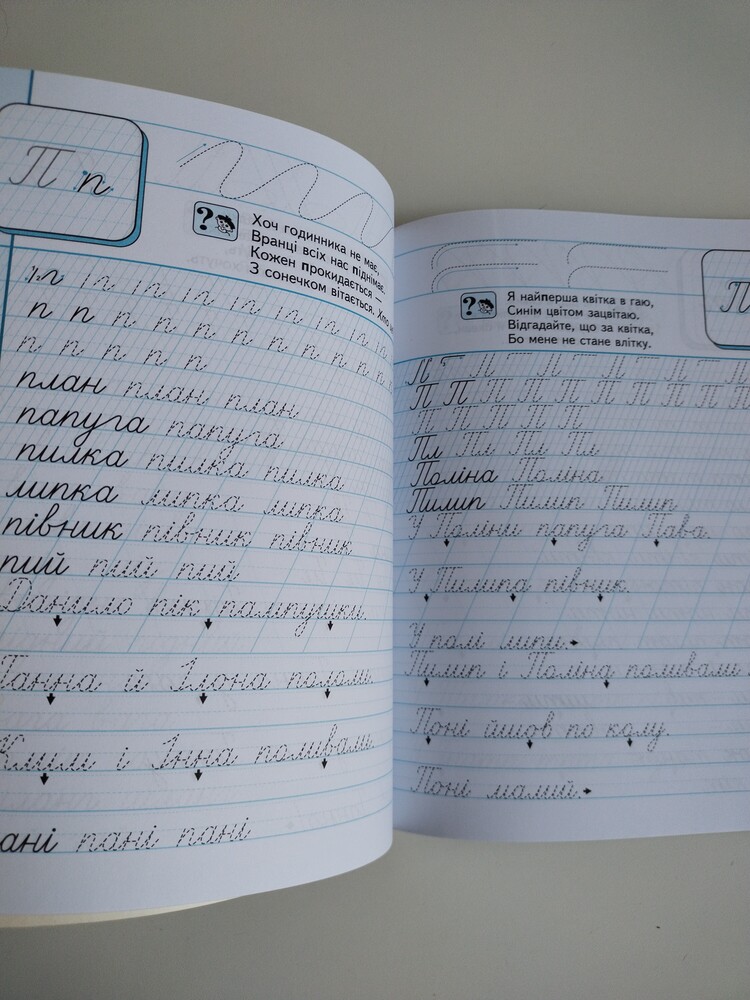 П п
?
Хоч годинника не має,
Вранці всіх нас піднімає.
Кожен прокидається –
З сонечком вітається.
п п п п п п п п п
п п п п п п п п п п
п п п п п
план план план
папуга папуга
пилка пилка пилка
липка липка липка
півник півник півник
пий пий пий
Данило пік пампушки.
Ганна й Ілона пололи.
Клим і Інна поливали.
ані пані пані
П
?
Я найперша квітка в гаю,
Синім цвітом зацвітаю.
Відгадайте, що за квітка,
Бо мене не стане влітку.
П П П П П П
П П П П П П П П П
П П П П П
Пл Пл Пл Пл
Поліна Поліна
Пилип Пилип Пилип
У Поліни папуга Пава.
У Пилипа півник.
У полі липи.
Пилип і Поліна поливали
Поні йшов по колу.
Поні малий.